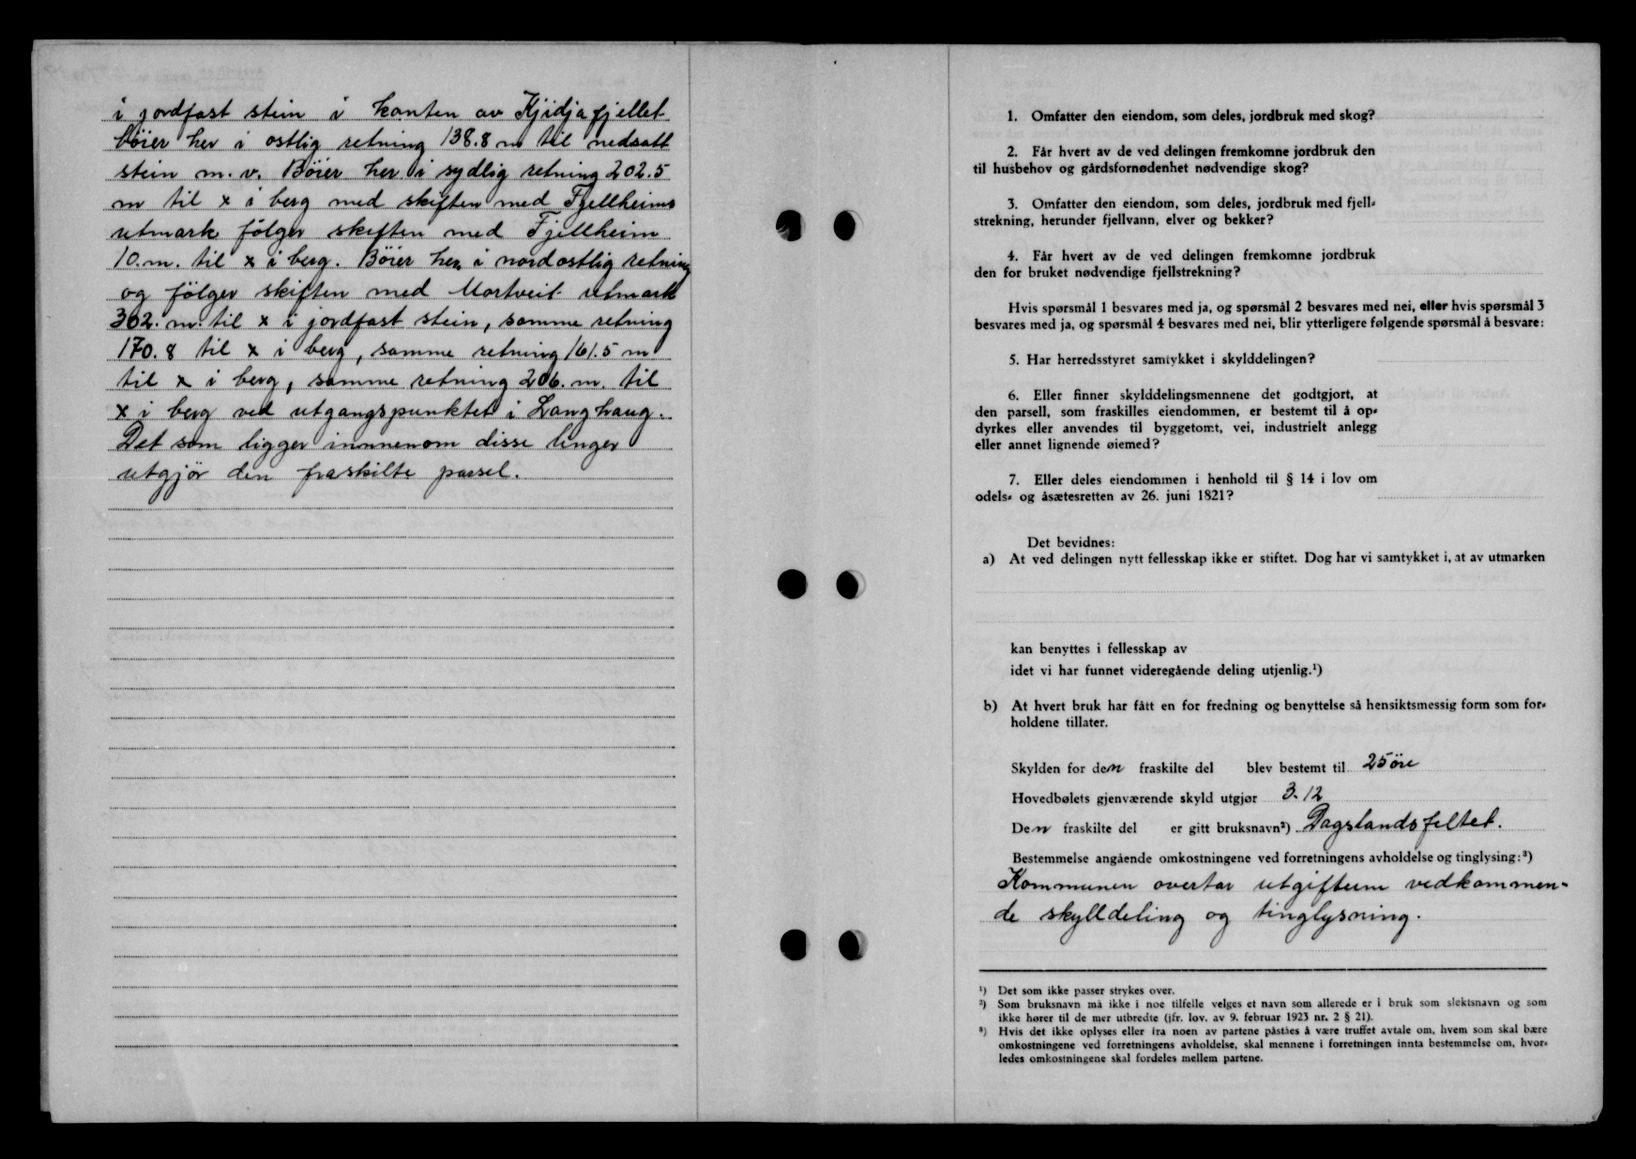 i jordfast stein i kanten av Kjidjafjellet
böier her i ostlig retning 138.8 m til nedsatt
stein m. v. Böier her i sydlig retning 202.5
m til x i berg med skiften med Fjellheims
utmark følger skiften med Fjellheim
10.m. til x i berg. Böier her i nordostlig retning
og fölger skiften med Mortveit utmark
362. m. til x i jordfast stein, samme retning
170.8 til x i berg, samme retning 161.5 m
til x i berg, samme retning 206. m. til
x i berg ved utgangspunktet i Langhaug.
Det som ligger innnenom disse linger
utgjör den fraskilte parsel.
1. Omfatter den eiendom, som deles, jordbruk med skog?
2. Får hvert av de ved delingen fremkomne jordbruk den
til husbehov og gårdsfornødenhet nødvendige skog?
3. Omfatter den eiendom, som deles, jordbruk med fjell-
strekning, herunder fjellvann, elver og bekker?
4. Får hvert av de ved delingen fremkomne jordbruk
den for bruket nødvendige fjellstrekning?
Hvis spørsmål 1 besvares med ja, og spørsmål 2 besvares med nei, eller hvis spørsmål 3
besvares med ja, og spørsmål 4 besvares med nei, blir ytterligere følgende spørsmål å besvare:
5. Har herredsstyret samtykket i skylddelingen?
6. Eller finner skylddelingsmennene det godtgjort, at
den parsell, som fraskilles eiendommen, er bestemt til å op-
dyrkes eller anvendes til byggetomt, vei, industrielt anlegg
eller annet lignende øiemed?
7. Eller deles eiendommen i henhold til § 14 i lov om
odels- og åsætesretten av 26. juni 1821?
Det bevidnes:
a) At ved delingen nytt fellesskap ikke er stiftet. Dog har vi samtykket i, at av utmarken
kan benyttes i fellesskap av
idet vi har funnet videregående deling utjenlig.¹)
b) At hvert bruk har fått en for fredning og benyttelse så hensiktsmessig form som for-
holdene tillater.
Skylden for den fraskilte del blev bestemt til 25 öre
Hovedbølets gjenværende skyld utgjør 3.12
Den fraskilte del er gitt bruksnavn²) Dagslandsfeltet.
Bestemmelse angående omkostningene ved forretningens avholdelse og tinglysing:³)
Kommunen overtar utgifterne vedkommen-
de skylldeling og tinglysning.
¹) Det som ikke passer strykes over.
²) Som bruksnavn må ikke i noe tilfelle velges et navn som allerede er i bruk som slektsnavn og som
ikke hører til de mer utbredte (jfr. lov. av 9. februar 1923 nr. 2 § 21).
³) Hvis det ikke oplyses eller fra noen av partene påstås å være truffet avtale om, hvem som skal bære
omkostningene ved forretningens avholdelse, skal mennene i forretningen innta bestemmelse om, hvor-
ledes omkostningene skal fordeles mellem partene.